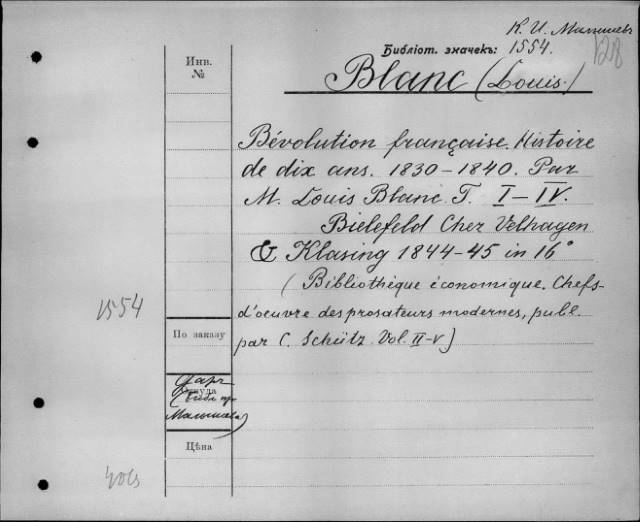 К. И. Малышевъ
Библіот. значекъ: 1554.
128
Инв. №
Blanc (Louis.)
Bévolution française. Histoire
de dix ans. 1830-1840. Par
M. Louis Blanc. T. I-IV.
Bielefeld Cher Velhagen
& Klasing 1844-45 in 16°
(Bibliothèque économique. Chefs-
d'oeuvre des prosateurs modernes, publ.
par C. Schütz. Vol. II-V)
1554
По заказу
Даръ
Откуда
Малышева)
Цѣна